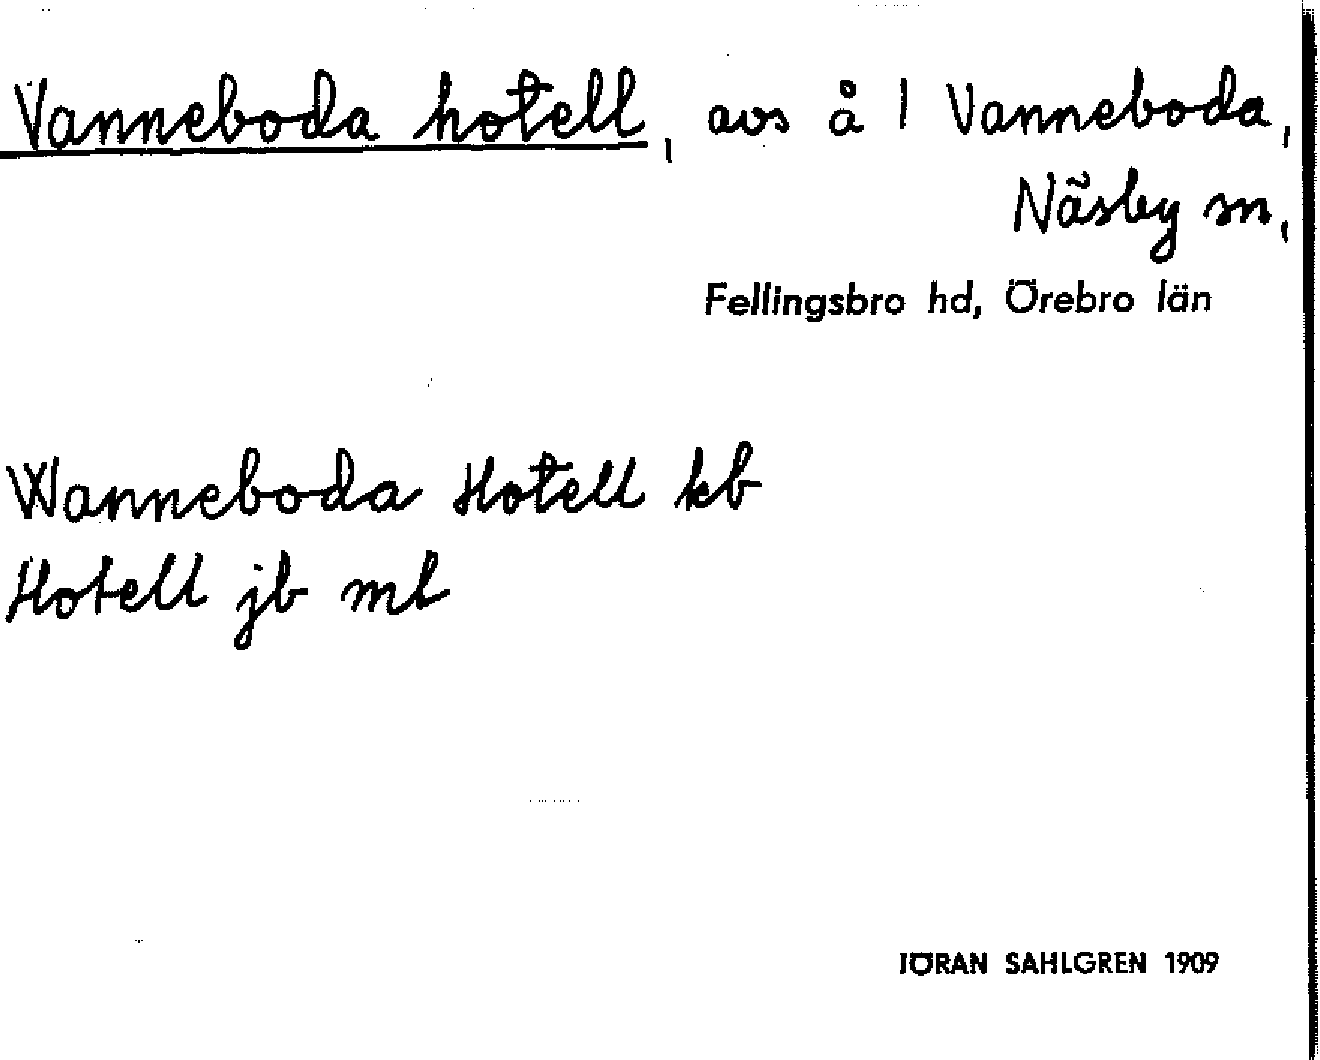 Vanneboda hotell, avs å 1 Vanneboda,
Näsby sn,
Fellingsbro hd, Örebro län
Wanneboda Hotell kb
Hotell jb ml
JÖRAN SAHLGREN 1909